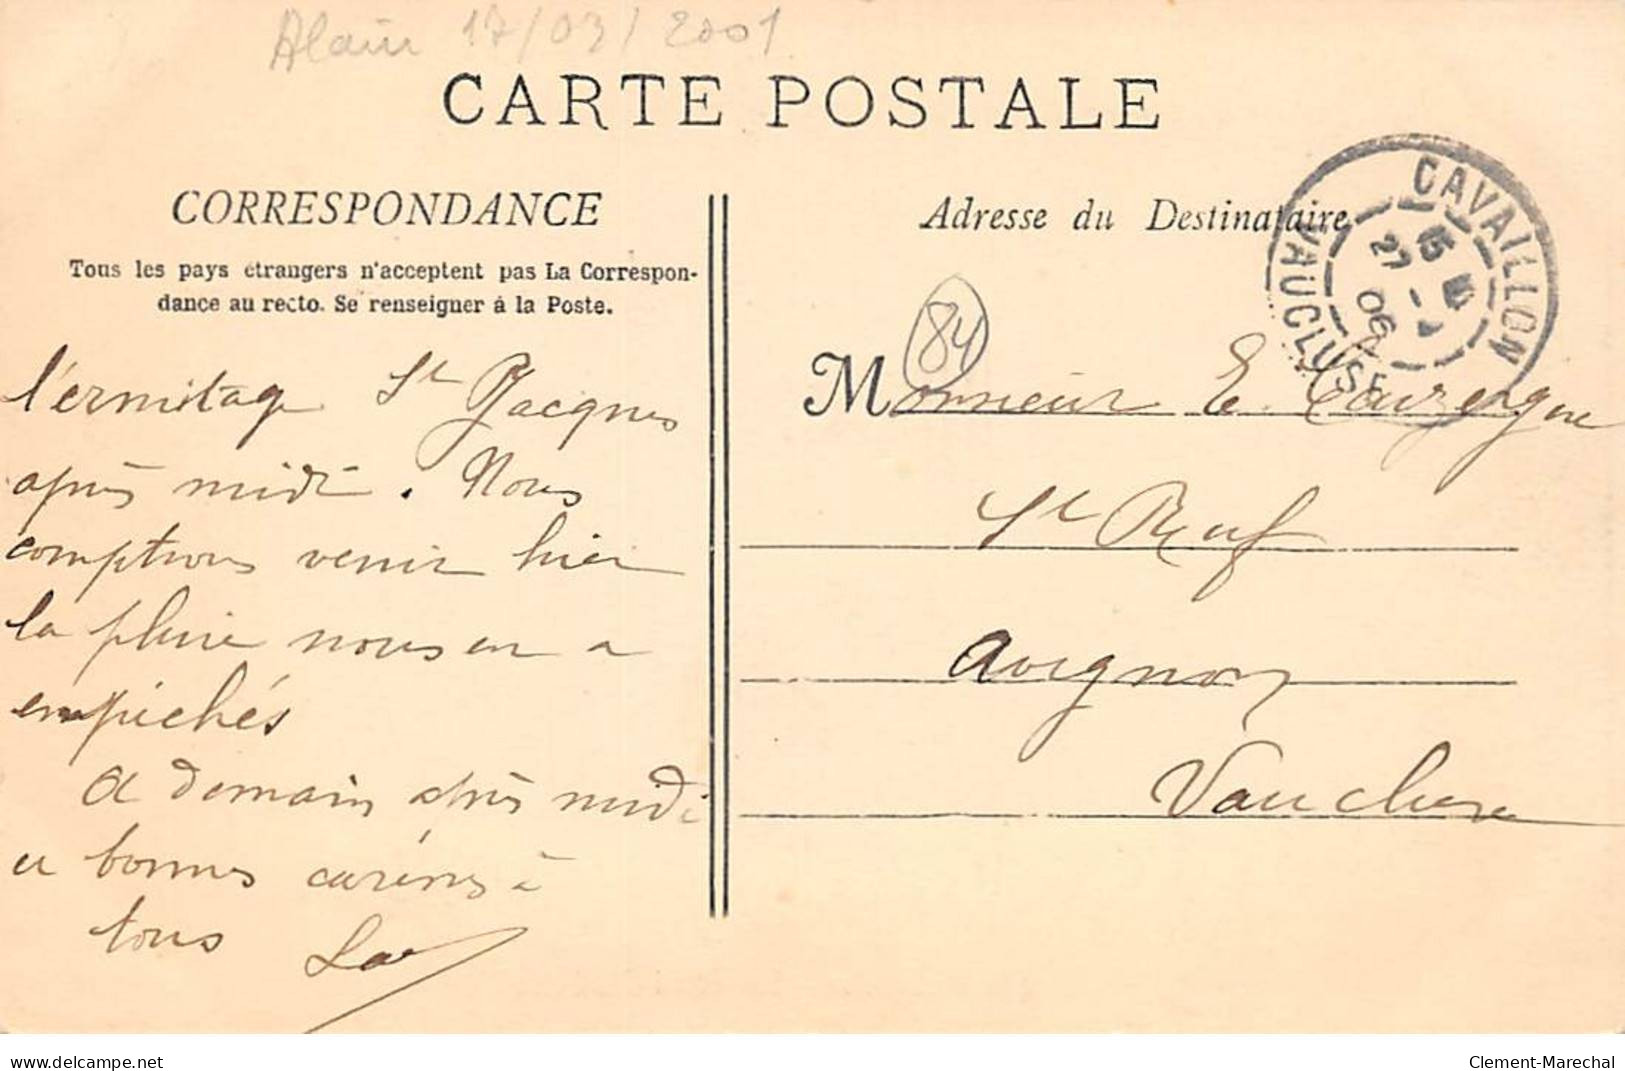 Alain 17/03/2001
CARTE POSTALE
CORRESPONDANCE
Tous les pays étrangers n'acceptent pas La Correspon-
dance au recto. Se renseigner à la Poste.
l'ermitage St Jacques
après midi. Nous
comptions venir hier
la pluie nous en a
empichés
a demain après midi
et bonnes à
tous
Adresse du Destinataire
CAVAILLON
15
27
06
VAUCLUSE
84
Monsieur E.
St Ruf
Avignon
Vaucluse
www.delcampe.net
Clement-Marechal